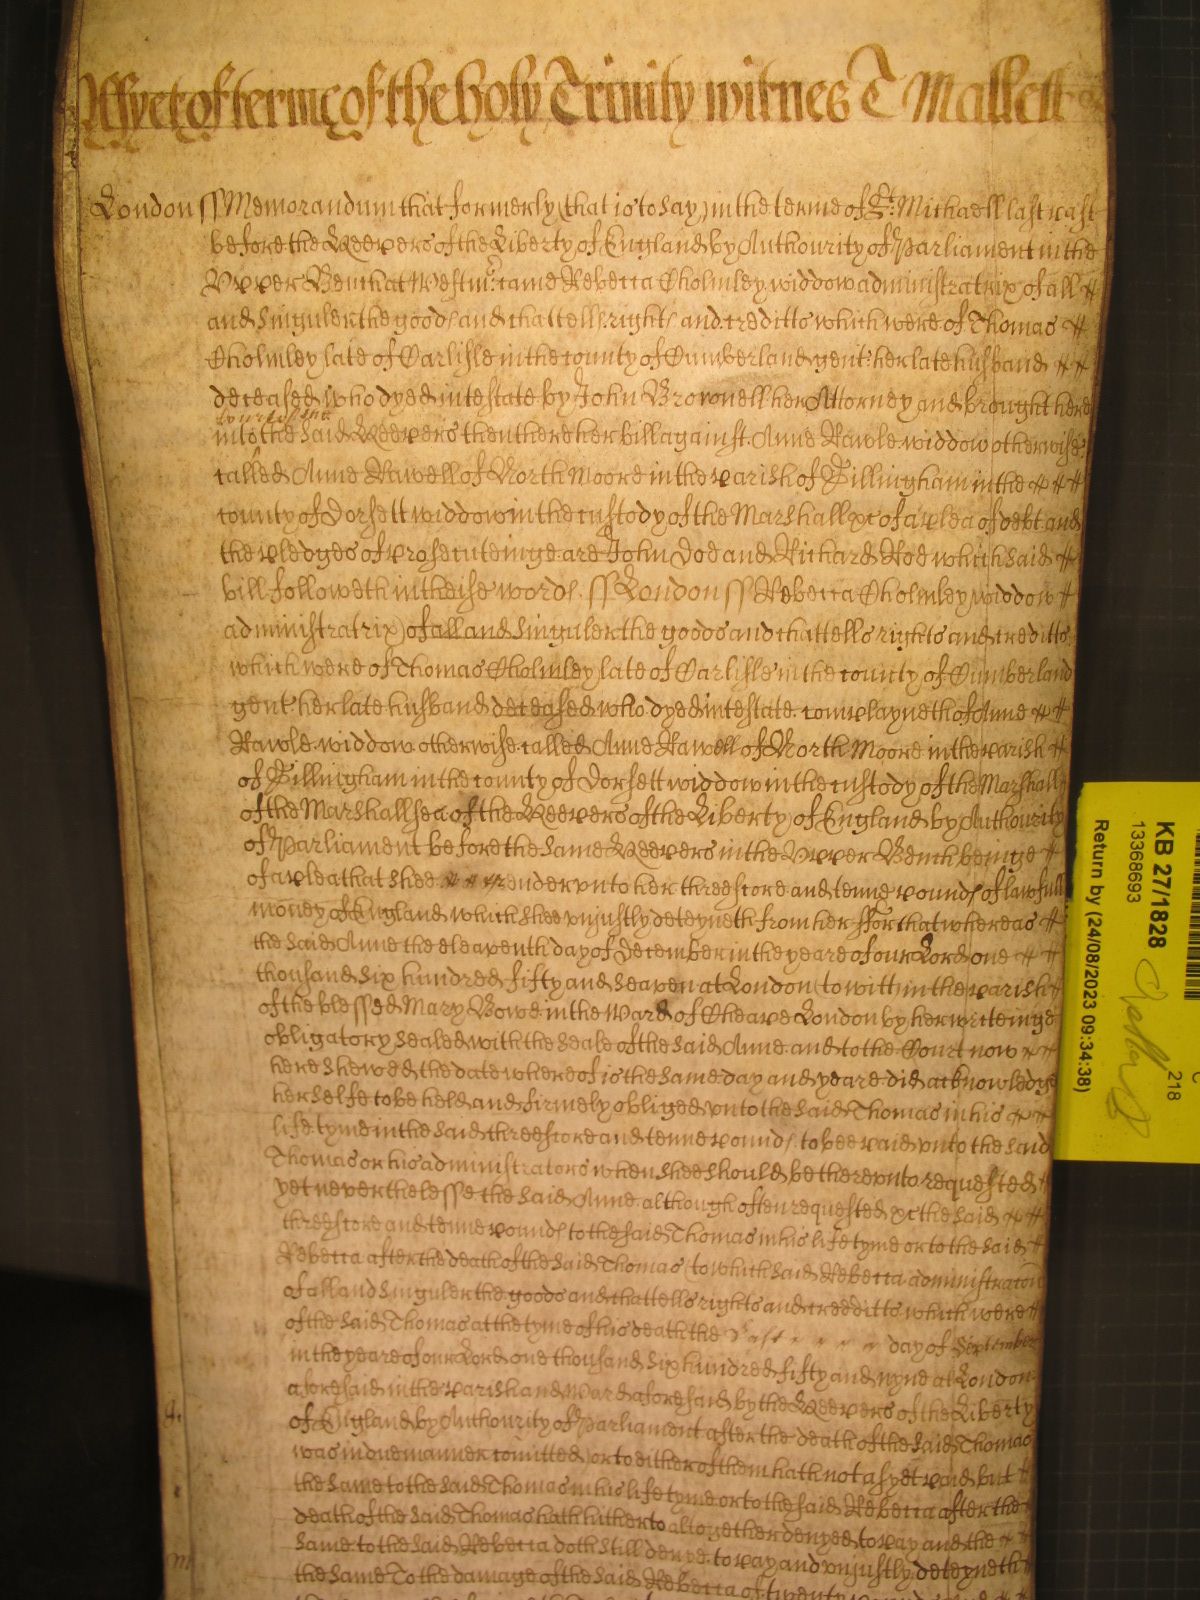 As yet of terme of the holy Trinity witnes T Mallett
London ss Memorandum that formerly (that is to say) in the terme of St. Michaell last past
before the Keepers of the Liberty of England by Authourity of Parliament in the
Vpper Bench at Westmr. came Rebecca Cholmley widdow administratrix of all
and singuler the goods and chattells rights and creditts which were of Thomas
Cholmley late of Carlisle in the county of Cumberland gent: her late husband
deceased who dyed intestate by John Brownell her Attorney and brought here
into the said Keepers then there her bill against Anne Rawle widdow otherwise
called Anne Rawell of North Moore in the parish of Gillingham in the
county of Dorsett widdow in the custody of the Marshall &c of a plea of debt and
the pledges of prosecuteinge are John Doe and Richard Roe which said
bill followeth in theise words ss London ss Rebecca Cholmley widdow
administratrix of all and singuler the goods and chattells rights and creditts
which were of Thomas Cholmley late of Carlisle in the county of Cumberland
gent her late husband deceased who dyed intestate complayneth of Anne
Rawle widdow otherwise called Anne Rawell of North Moore in the parish
of Gillingham in the county of Dorsett widdow in the custody of the Marshall
of the Marshallsea of the Keepers of the Liberty of England by Authourity
of Parliament before the same Keepers in the Vpper Bench beinge
of a plea that shee render vnto her threescore and tenne pounds of lawfull
money of England which shee vnjustly deteyneth from her ffor that whereas
the said Anne the eleaventh day of December in the yeare of our Lord one
thousand six hundred fifty and seaven at London to witt in the parish
of the blessed Mary Bowe in the Ward of Cheape London by her writeinge
obligatory sealed with the seale of the said Anne and to the Court now
here shewed the date whereof is the same day and yeare did acknowledge
herselfe to be held and firmely obliged vnto the said Thomas in his
life tyme in the said threescore and tenne pounds to bee paid vnto the said
Thomas or his administrators when shee should be therevnto requested
yet neverthelesse the said Anne although often requested &c the said
threescore and tenne pounds to the said Thomas in his life tyme or to the said
Rebecca after the death of the said Thomas (to which said Rebecca administracon
of all and singuler the goods and chattells rights and credditts which were
of the said Thomas at the tyme of his death the last day of September
in the yeare of our Lord one thousand six hundred fifty and nyne at London
aforesaid in the parish and Ward aforesaid by the Keepers of the Liberty
of England by Authourity of Parliament after the death of the said Thomas
was in due manner comitted) or to either of them hath not as yet paid but
the same to the said Thomas in his life tyme or to the said Rebecca after the
death of the said Thomas hath hitherto altogether denyed to pay and the
same to the said Rebecca doth still denye to pay and vnjustly deteyneth
the same To the damage of the said Rebecca of twenty
KB 27/1828
13368693
218
Return by (24/08/2023 09:34:38)